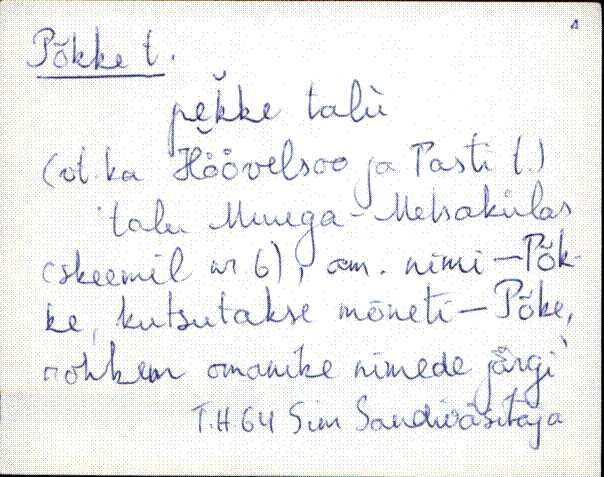 Põkke t.
pe̮kke talù
(vt. ka Höövelsoo ja Pasti t.)
talu Muuga-Metsakülas
(skeemil nr 6), am. nimi – Põk-
ke, kutsutakse mõneti – Põke,
rohkem omanike nimede järgi
T.H. 64 Sim